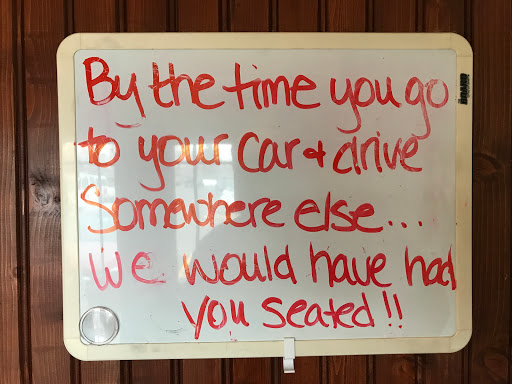 By the time you go
to your car & drive
Somewhere else...
We would have had
you seated!!
BOARD